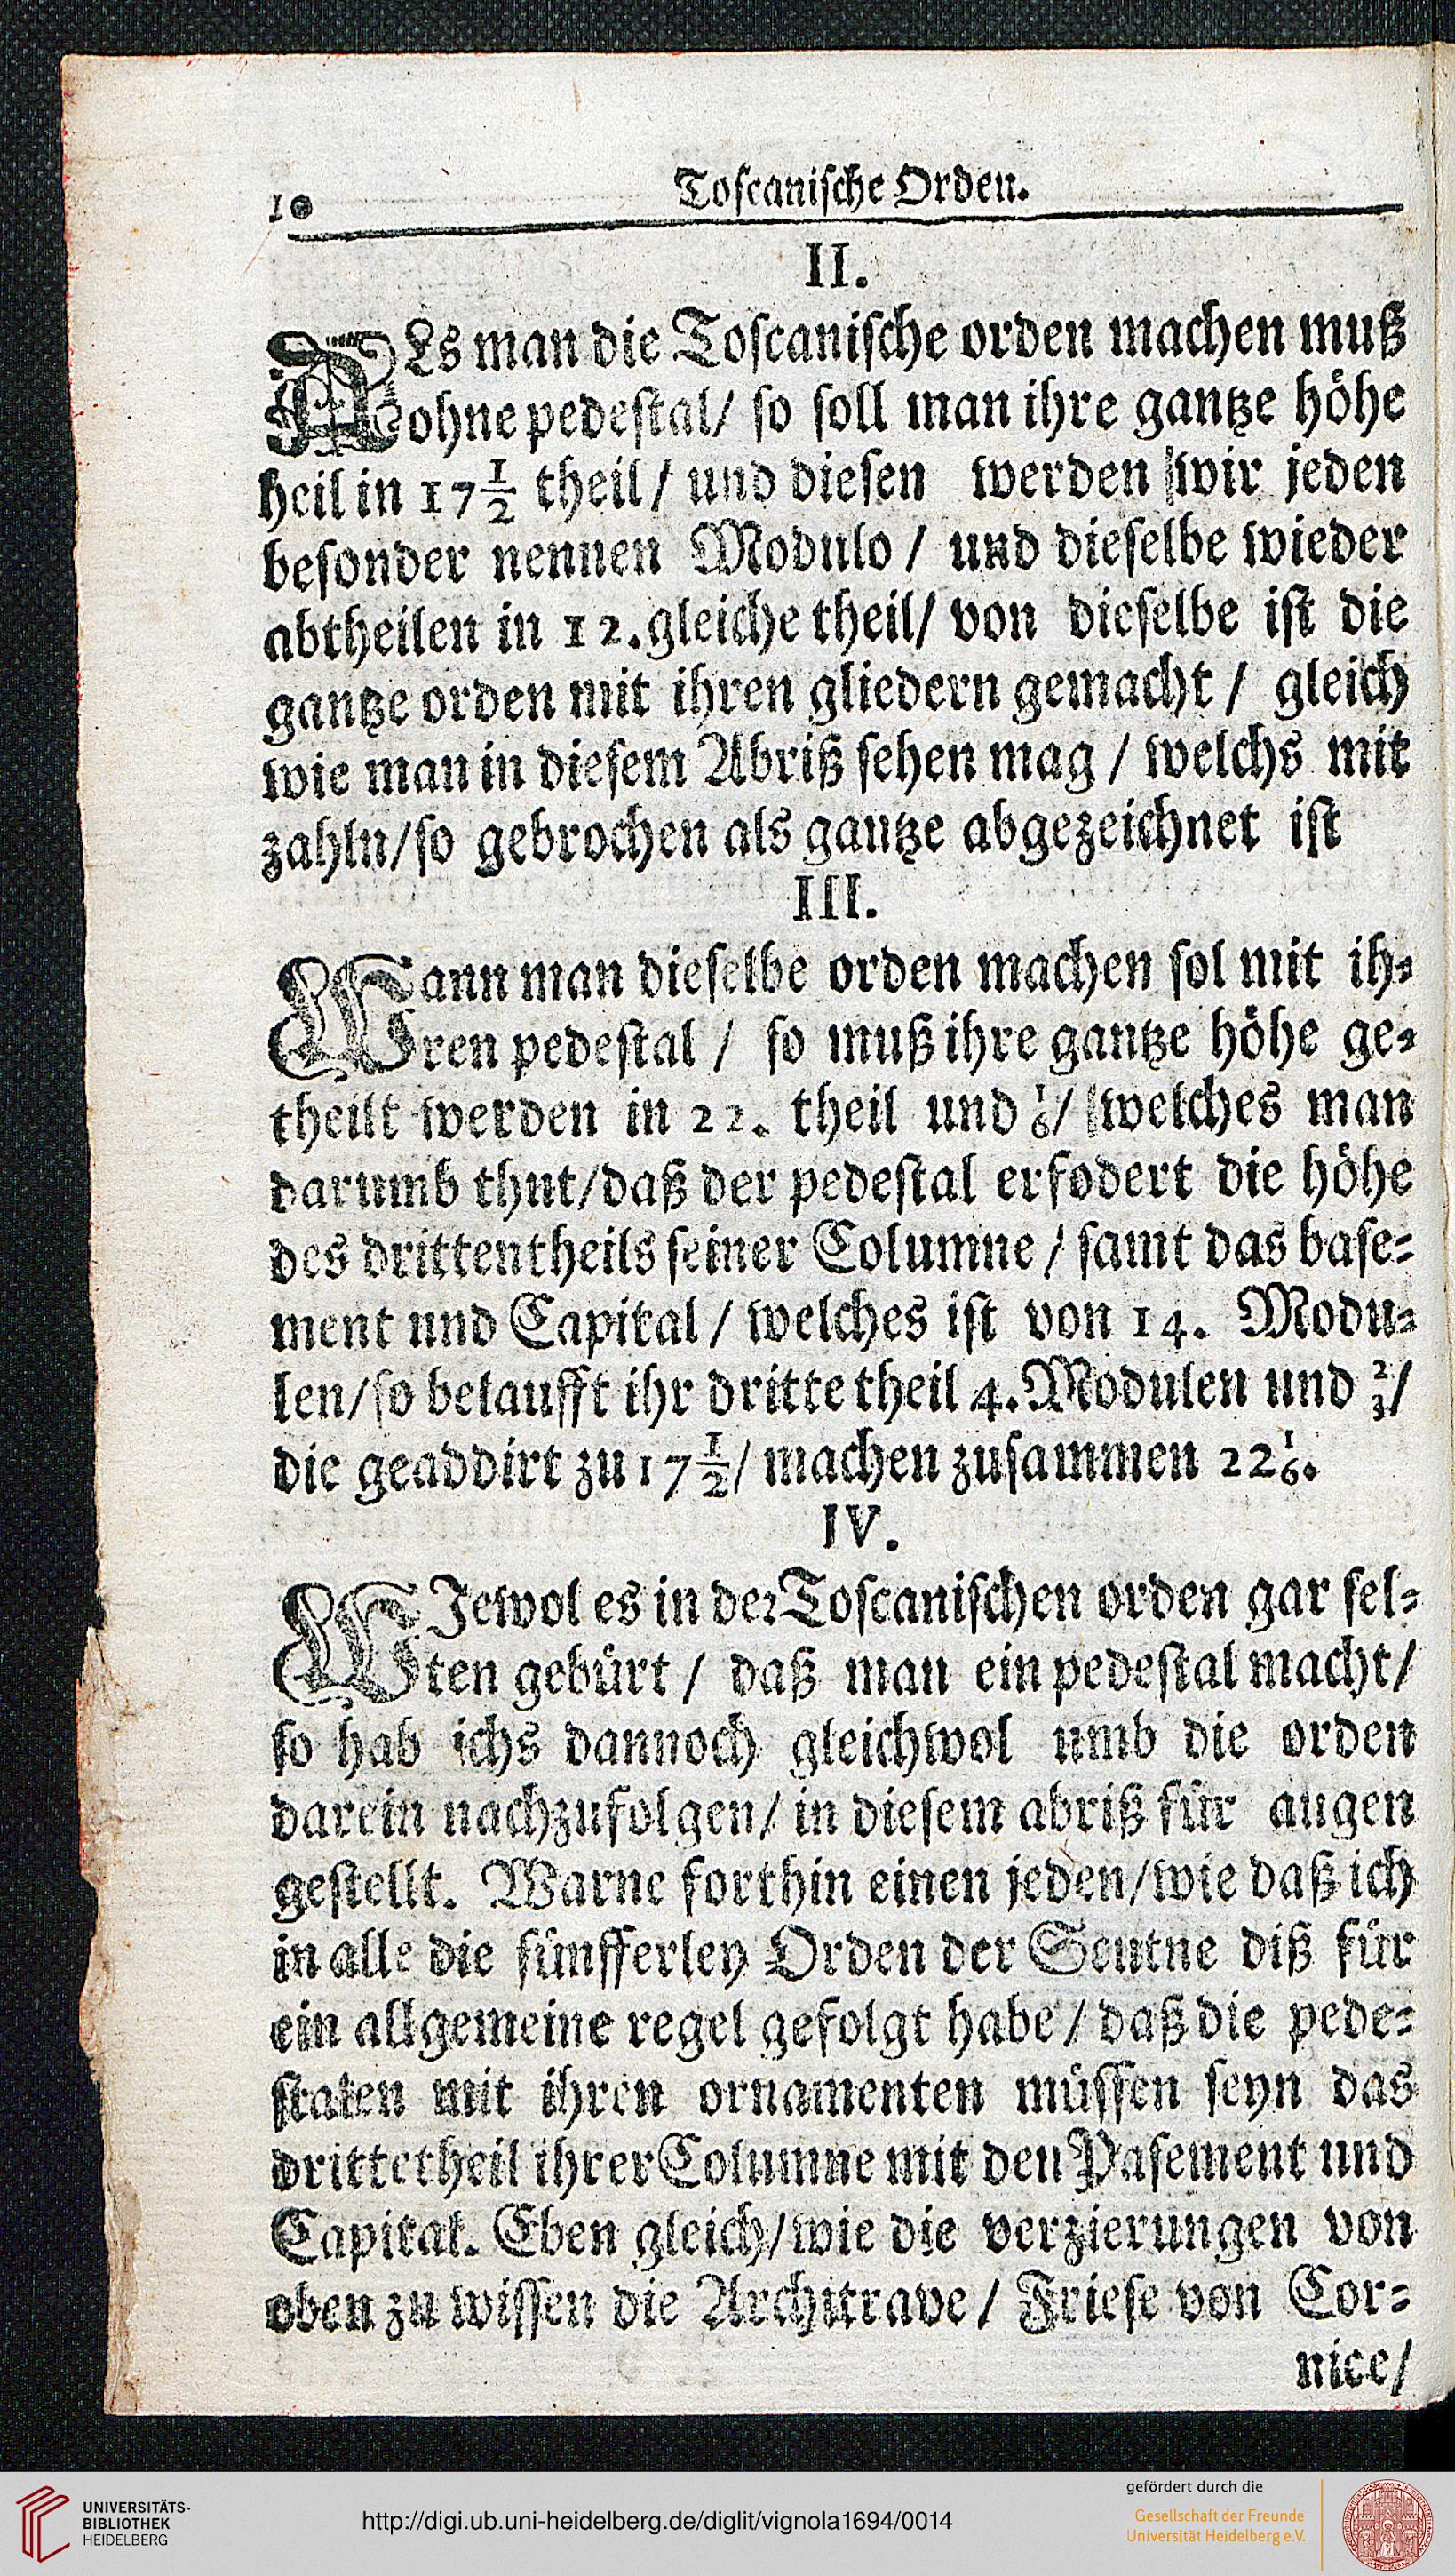 10
Toſcaniſche Orden.
II.
ALs man die Toſcaniſche orden machen muß
ohne pedeſtal/ ſo ſoll man ihre gantze höhe
heil in 17 1/2 theil/ und dieſen werden wir jeden
beſonder nennen Modulo / und dieſelbe wieder
abtheilen in 12. gleiche theil/ von dieſelbe iſt die
gantze orden mit ihren gliedern gemacht / gleich
wie man in dieſem Abriß ſehen mag / welchs mit
zahln/ſo gebrochen als gantze abgezeichnet iſt
III.
Wann man dieſelbe orden machen ſol mit ih⸗
ren pedeſtal / ſo muß ihre gantze höhe ge⸗
theilt werden in 22. theil und 1/6/ welches man
darumb thut/daß der pedeſtal erfodert die höhe
des drittentheils ſeiner Columne / ſamt das baſe⸗
ment und Capital / welches iſt von 14. Modu⸗
len/ſo belaufft ihr dritte theil 4. Modulen und 2/3/
die geaddirt zu 17 1/2/ machen zuſammen 22 1/6.
IV.
WJewol es in der Toſcaniſchen orden gar ſel⸗
ten gebürt / daß man ein pedeſtal macht/
ſo hab ichs dannoch gleichwol umb die orden
darein nachzufolgen/ in dieſem abriß für augen
geſtellt. Warne forthin einen jeden/wie daß ich
in alle die fünfferley Orden der Seutne diß für
ein allgemeine regel gefolgt habe / daß die pede⸗
ſtalen mit ihren ornamenten müſſen ſeyn das
drittetheil ihrer Columne mit den Paſement und
Capital. Eben gleich/wie die verzierungen von
oben zu wiſſen die Architrave / Frieſe von Cor⸗
nice/
UNIVERSITÄTS-
BIBLIOTHEK
HEIDELBERG
http://digi.ub.uni-heidelberg.de/diglit/vignola1694/0014
gefördert durch die
Gesellschaft der Freunde
Universität Heidelberg e.V.